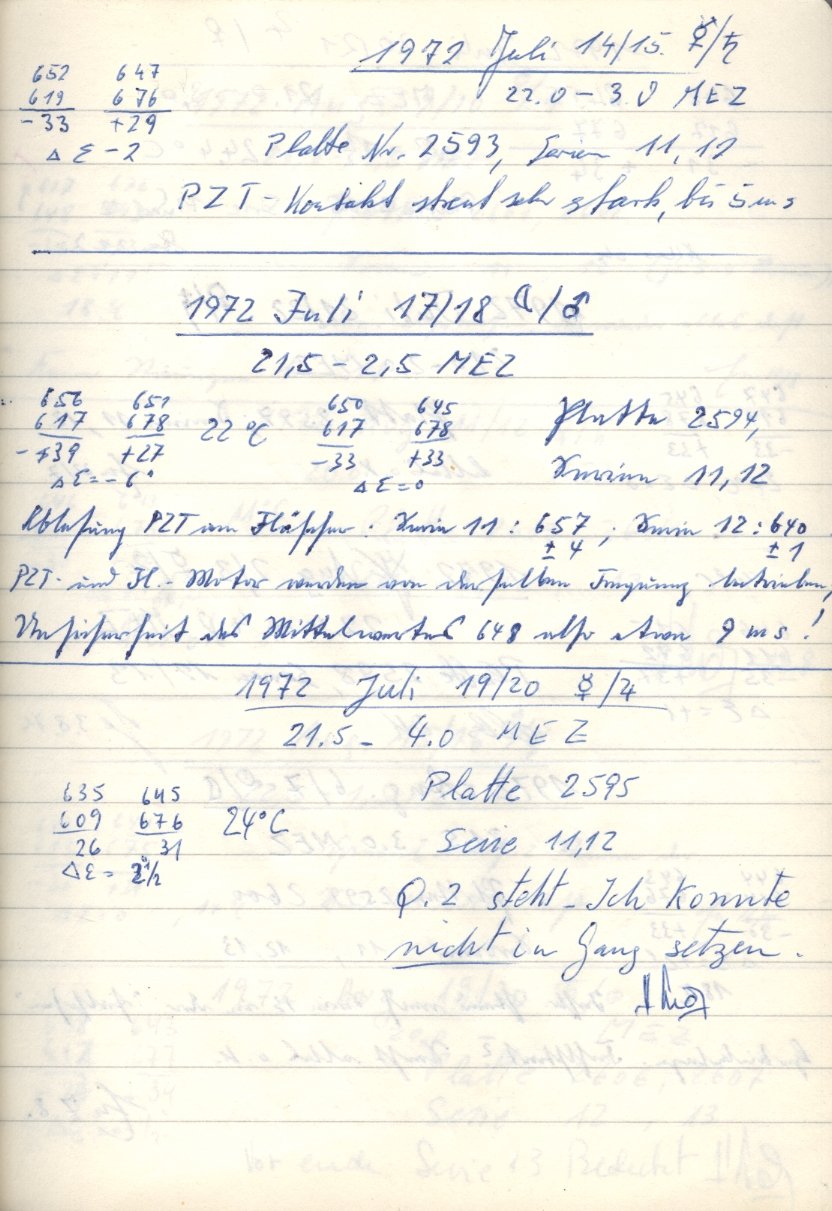 1972 Juli 14/15. ♀/♄
22.0 – 3.0 MEZ
652 647
619 676
-33 +29
Δ Ɛ -2
Platte Nr. 2593, Serien 11, 12
PZT-Kontakt streut sehr stark, bis 5 ms
1972 Juli 17/18 ☾/♂
21,5 – 2,5 MEZ
656 651 650 645
617 678 22 °C 617 678
-39 +27 -33 +33
Δ Ɛ = -6 Δ Ɛ = 0
Platte 2594,
Serien 11, 12
Ablesung PZT am : Serie 11 : 657 ; Serie 12 : 640
± 4 ± 1
PZT- und H.-Motor werden von derselben betrieben,
Unsicherheit des Mittelwertes 648 also etwa 9 ms!
1972 Juli 19/20 ☿/♃
21.5 – 4.0 MEZ
635 645
609 676 24°C
26 31
Δ Ɛ = 2 1/2
Platte 2595
Serie 11,12
Q.2 steht – Ich konnte
nicht in Gang setzen.